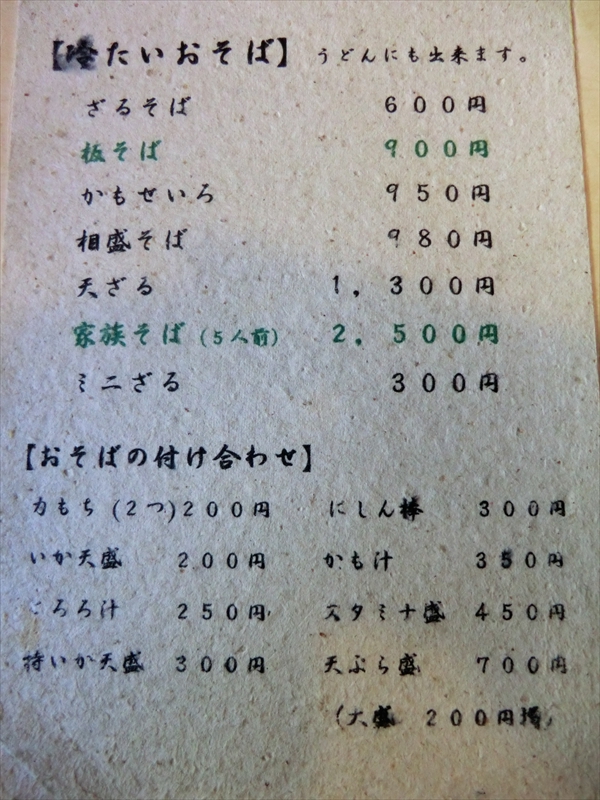 【冷たいおそば】 うどんにも出来ます。
ざるそば 600円
板そば 900円
かもせいろ 950円
相盛そば 980円
天ざる 1,300円
家族そば(5人前) 2,500円
ミニざる 300円
【おそばの付け合わせ】
力もち(2つ)200円 にしん棒 300円
いか天盛 200円 かも汁 350円
とろろ汁 250円 スタミナ盛 450円
特いか天盛 300円 天ぷら盛 700円
(大盛 200円増)